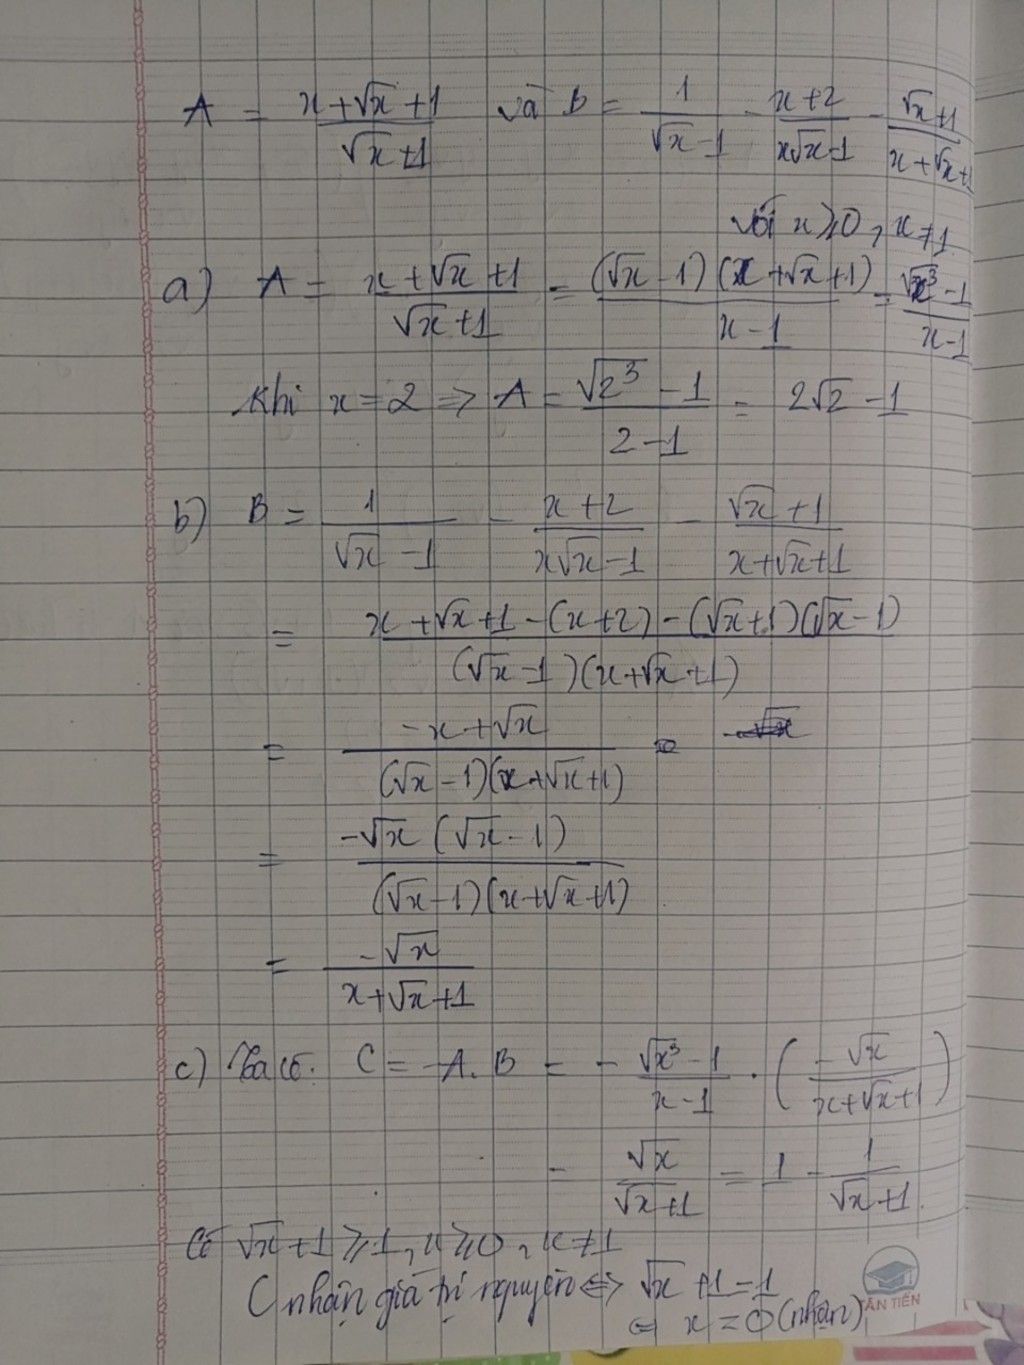 A = (x + √x + 1)/(√x + 1) và B = 1/(√x - 1) - (x + 2)/(x√x - 1) - (√x + 1)/(x + √x + 1
với x ⩾ 0, x ≠ 1.
a) A = (x + √x + 1)/(√x + 1) = ((√x - 1)(x + √x + 1))/(x - 1) = (√x³ - 1)/(x - 1)
Khi x = 2 => A = (√2³ - 1)/(2 - 1) = 2√2 - 1
b) B = 1/(√x - 1) - (x + 2)/(x√x - 1) - (√x + 1)/(x + √x + 1)
= (x + √x + 1 - (x + 2) - (√x + 1)(√x - 1))/((√x - 1)(x + √x + 1))
= (-x + √x)/((√x - 1)(x + √x + 1)) =
= (-√x (√x - 1))/((√x - 1)(x + √x + 1))
= (-√x)/(x + √x + 1)
c) Ta có: C = -A.B = - (√x³ - 1)/(x - 1) · ((-√x)/(x + √x + 1))
= √x/(√x + 1) = 1 - 1/(√x + 1)
Có √x + 1 ⩾ 1, x ⩾ 0, x ≠ 1
C nhận giá trị nguyên <=> √x + 1 = 1
<=> x = 0 (nhận)
TÂN TIẾN